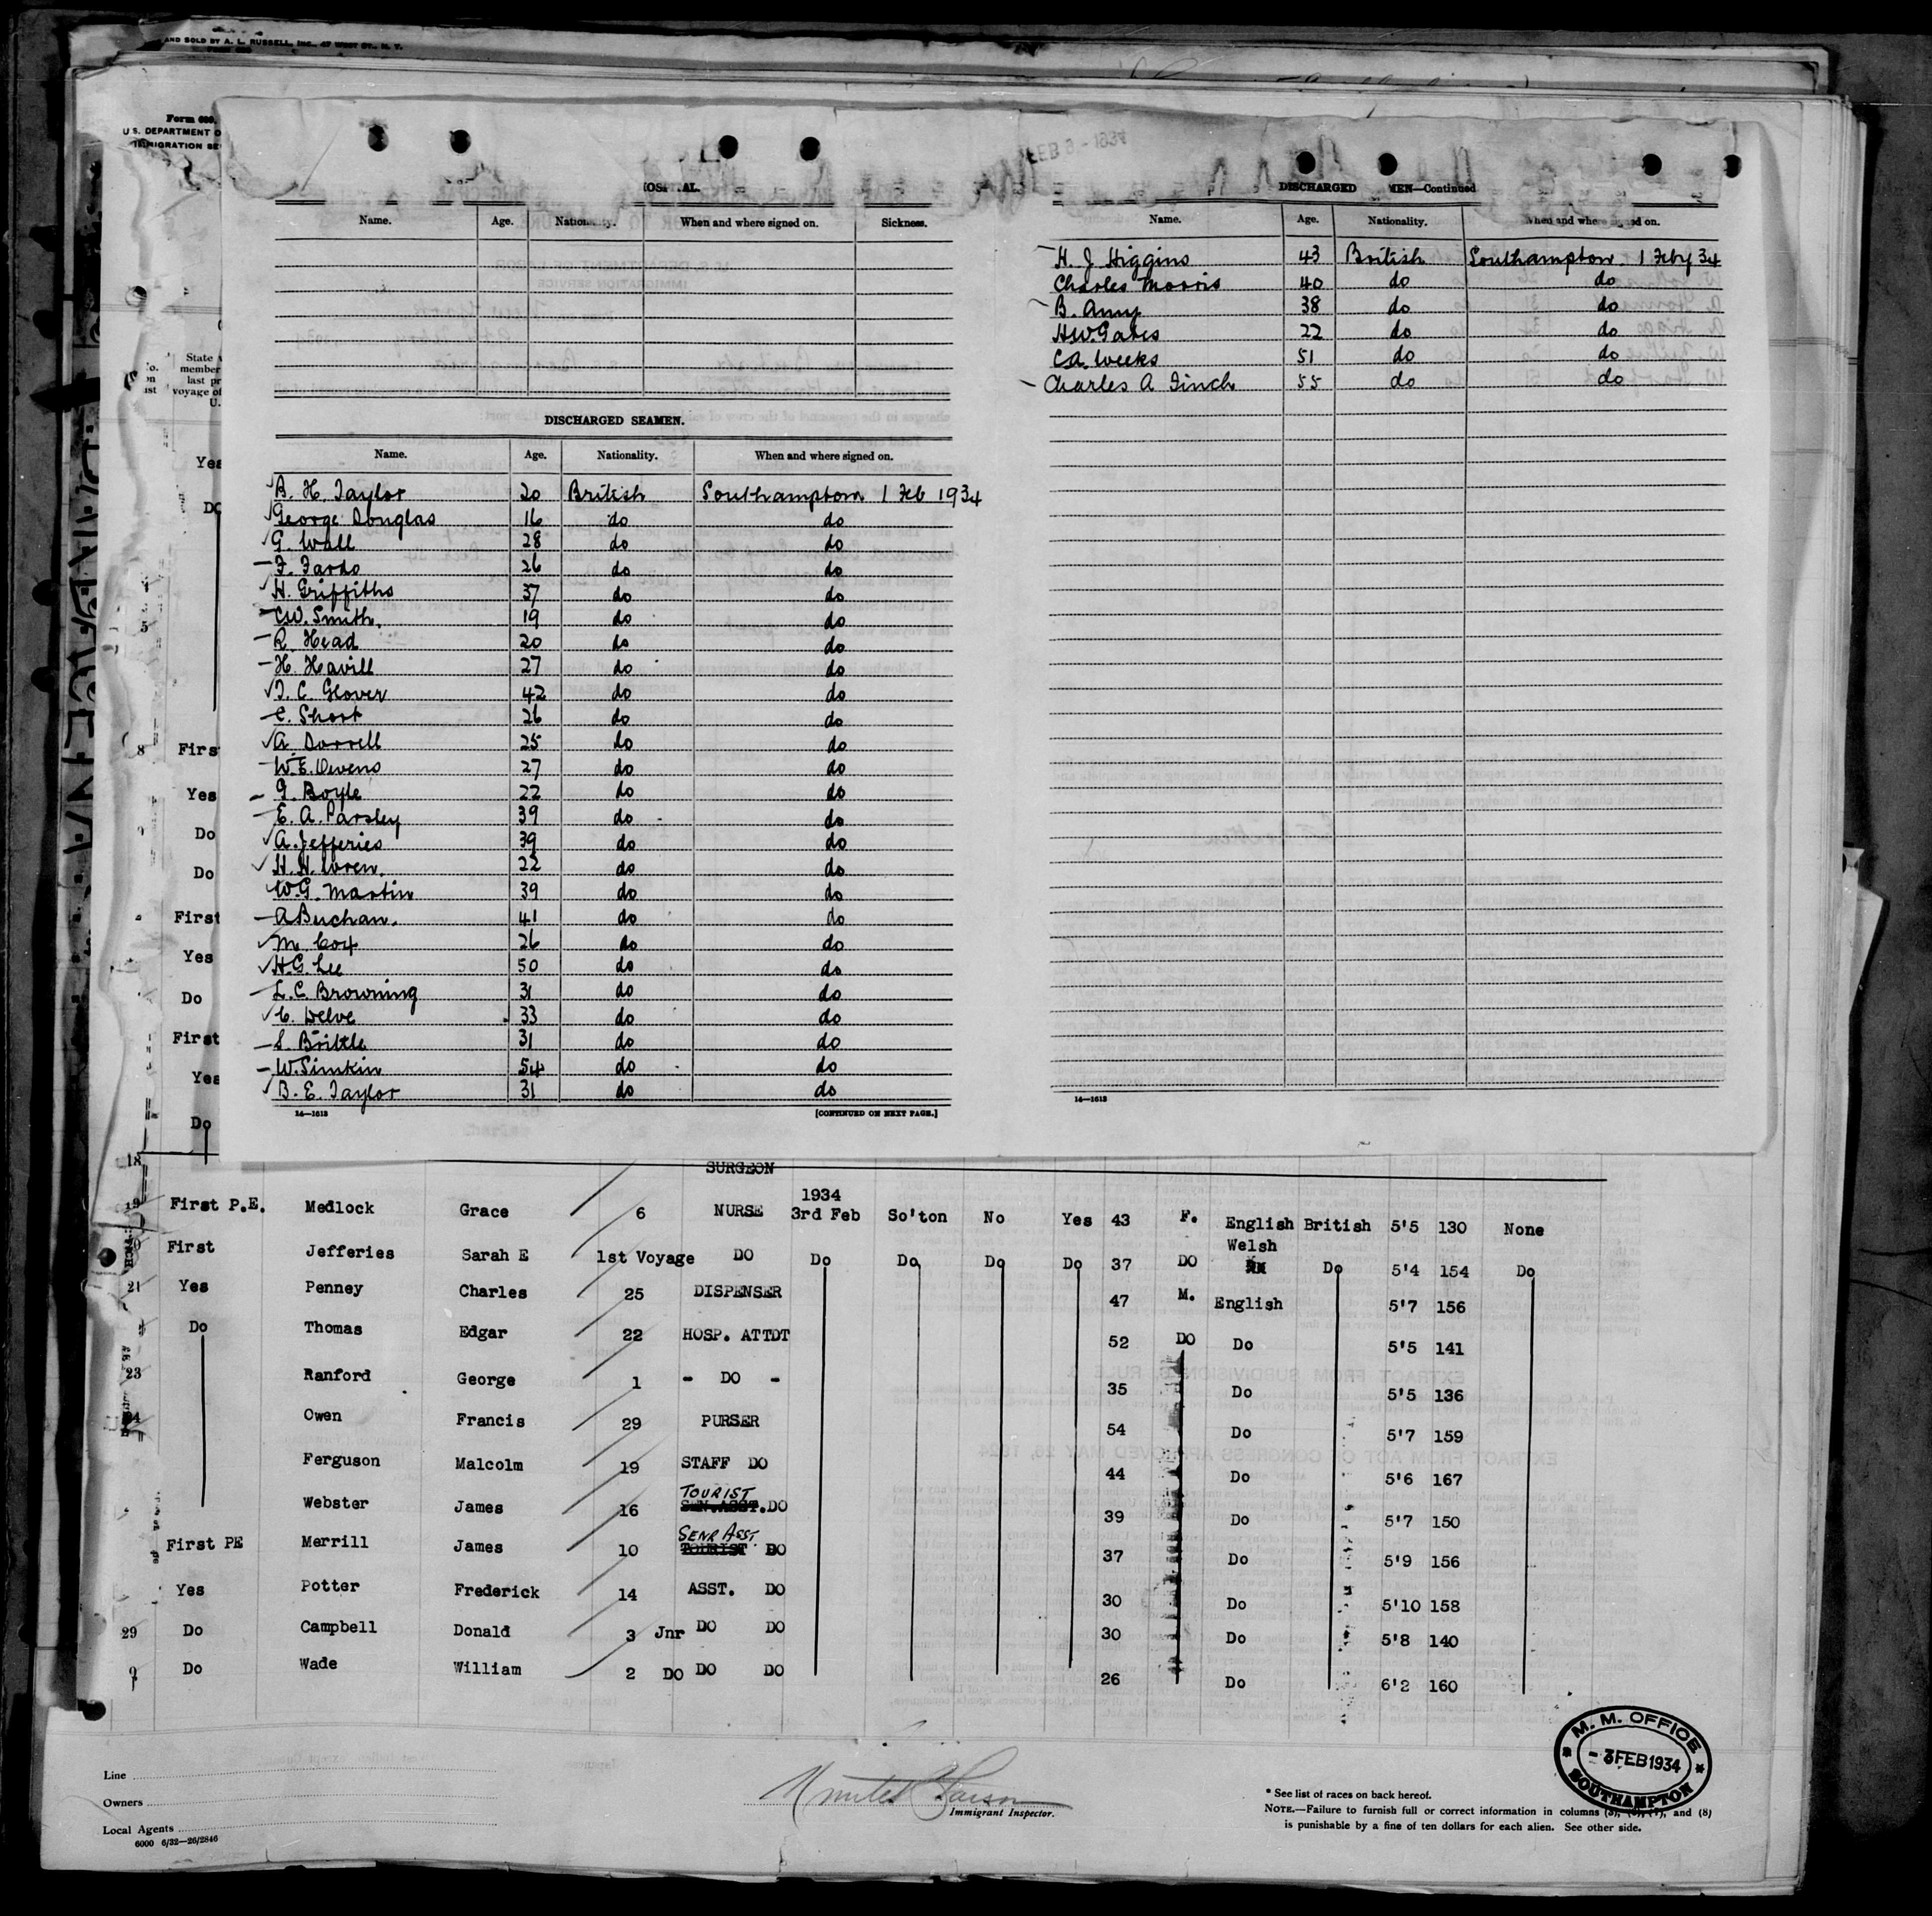 AND SOLD BY A. L. RUSSELL, INC., 47 WEST ST., N. Y.
Form 689
U. S. DEPARTMENT O
IMMIGRATION SE
FEB 3 - 1934
Name. Age. Nationality. When and where signed on. Sickness.
DISCHARGED SEAMEN.
Name. Age. Nationality. When and where signed on.
B. H. Taylor 20 British Southampton 1 Feb 1934
George Douglas 16 do do
G. Wall 28 do do
F. Fardo 26 do do
H. Griffiths 37 do do
C.W. Smith. 19 do do
R. Head 20 do do
H. Havill 27 do do
T. C. Glover 42 do do
C. Short 26 do do
A. Dorrell 25 do do
W.E. Owens 27 do do
G. Boyle 22 do do
E. A. Parsley 39 do do
A. Jefferies 39 do do
H. H. Wren. 22 do do
W.G. Martin 39 do do
A Buchan. 41 do do
M. Cox 26 do do
H.G. Lee 50 do do
L.C. Browning 31 do do
C. Delve 33 do do
S. Brittle 31 do do
W. Simkin 54 do do
B. E. Taylor 31 do do
14—1613 [CONTINUED ON NEXT PAGE.]
DISCHARGED MEN—Continued
Name. Age. Nationality. When and where signed on.
H. J. Higgins 43 British Southampton. 1 Feby 34
Charles Morris 40 do do
B. Amy 38 do do
H.W. Gates 22 do do
C.A. Weeks 51 do do
Charles A Finch 55 do do
14—1613
State
member
last pr
voyage of
U.
Yes
DO
8 Firs
Yes
Do
Do
First
Yes
Do
First
Yes
Do
18 SURGEON
19 First P.E. Medlock Grace 6 NURSE 1934 3rd Feb So'ton No Yes 43 F. English British 5'5 130 None
First Jefferies Sarah E 1st Voyage DO Do Do Do Do 37 DO Welsh Do 5'4 154 Do
21 Yes Penney Charles 25 DISPENSER 47 M. English 5'7 156
Do Thomas Edgar 22 HOSP. ATTDT 52 DO Do 5'5 141
23 Ranford George 1 - DO - 35 Do 5'5 136
Owen Francis 29 PURSER 54 Do 5'7 159
Ferguson Malcolm 19 STAFF DO 44 Do 5'6 167
Webster James 16 TOURIST SEN.ASST. DO 39 Do 5'7 150
First PE Merrill James 10 SENR ASST. TOURIST DO 37 Do 5'9 156
Yes Potter Frederick 14 ASST. DO 30 Do 5'10 158
29 Do Campbell Donald 3 Jnr DO DO 30 Do 5'8 140
Do Wade William 2 DO DO DO 26 Do 6'2 160
Line
Owners
Local Agents
6000 6/32—26/2846
Immigrant Inspector.
* See list of races on back hereof.
NOTE.—Failure to furnish full or correct information in columns (5), (6), (7), and (8)
is punishable by a fine of ten dollars for each alien. See other side.
M. M. OFFICE
- 3 FEB 1934
SOUTHAMPTON